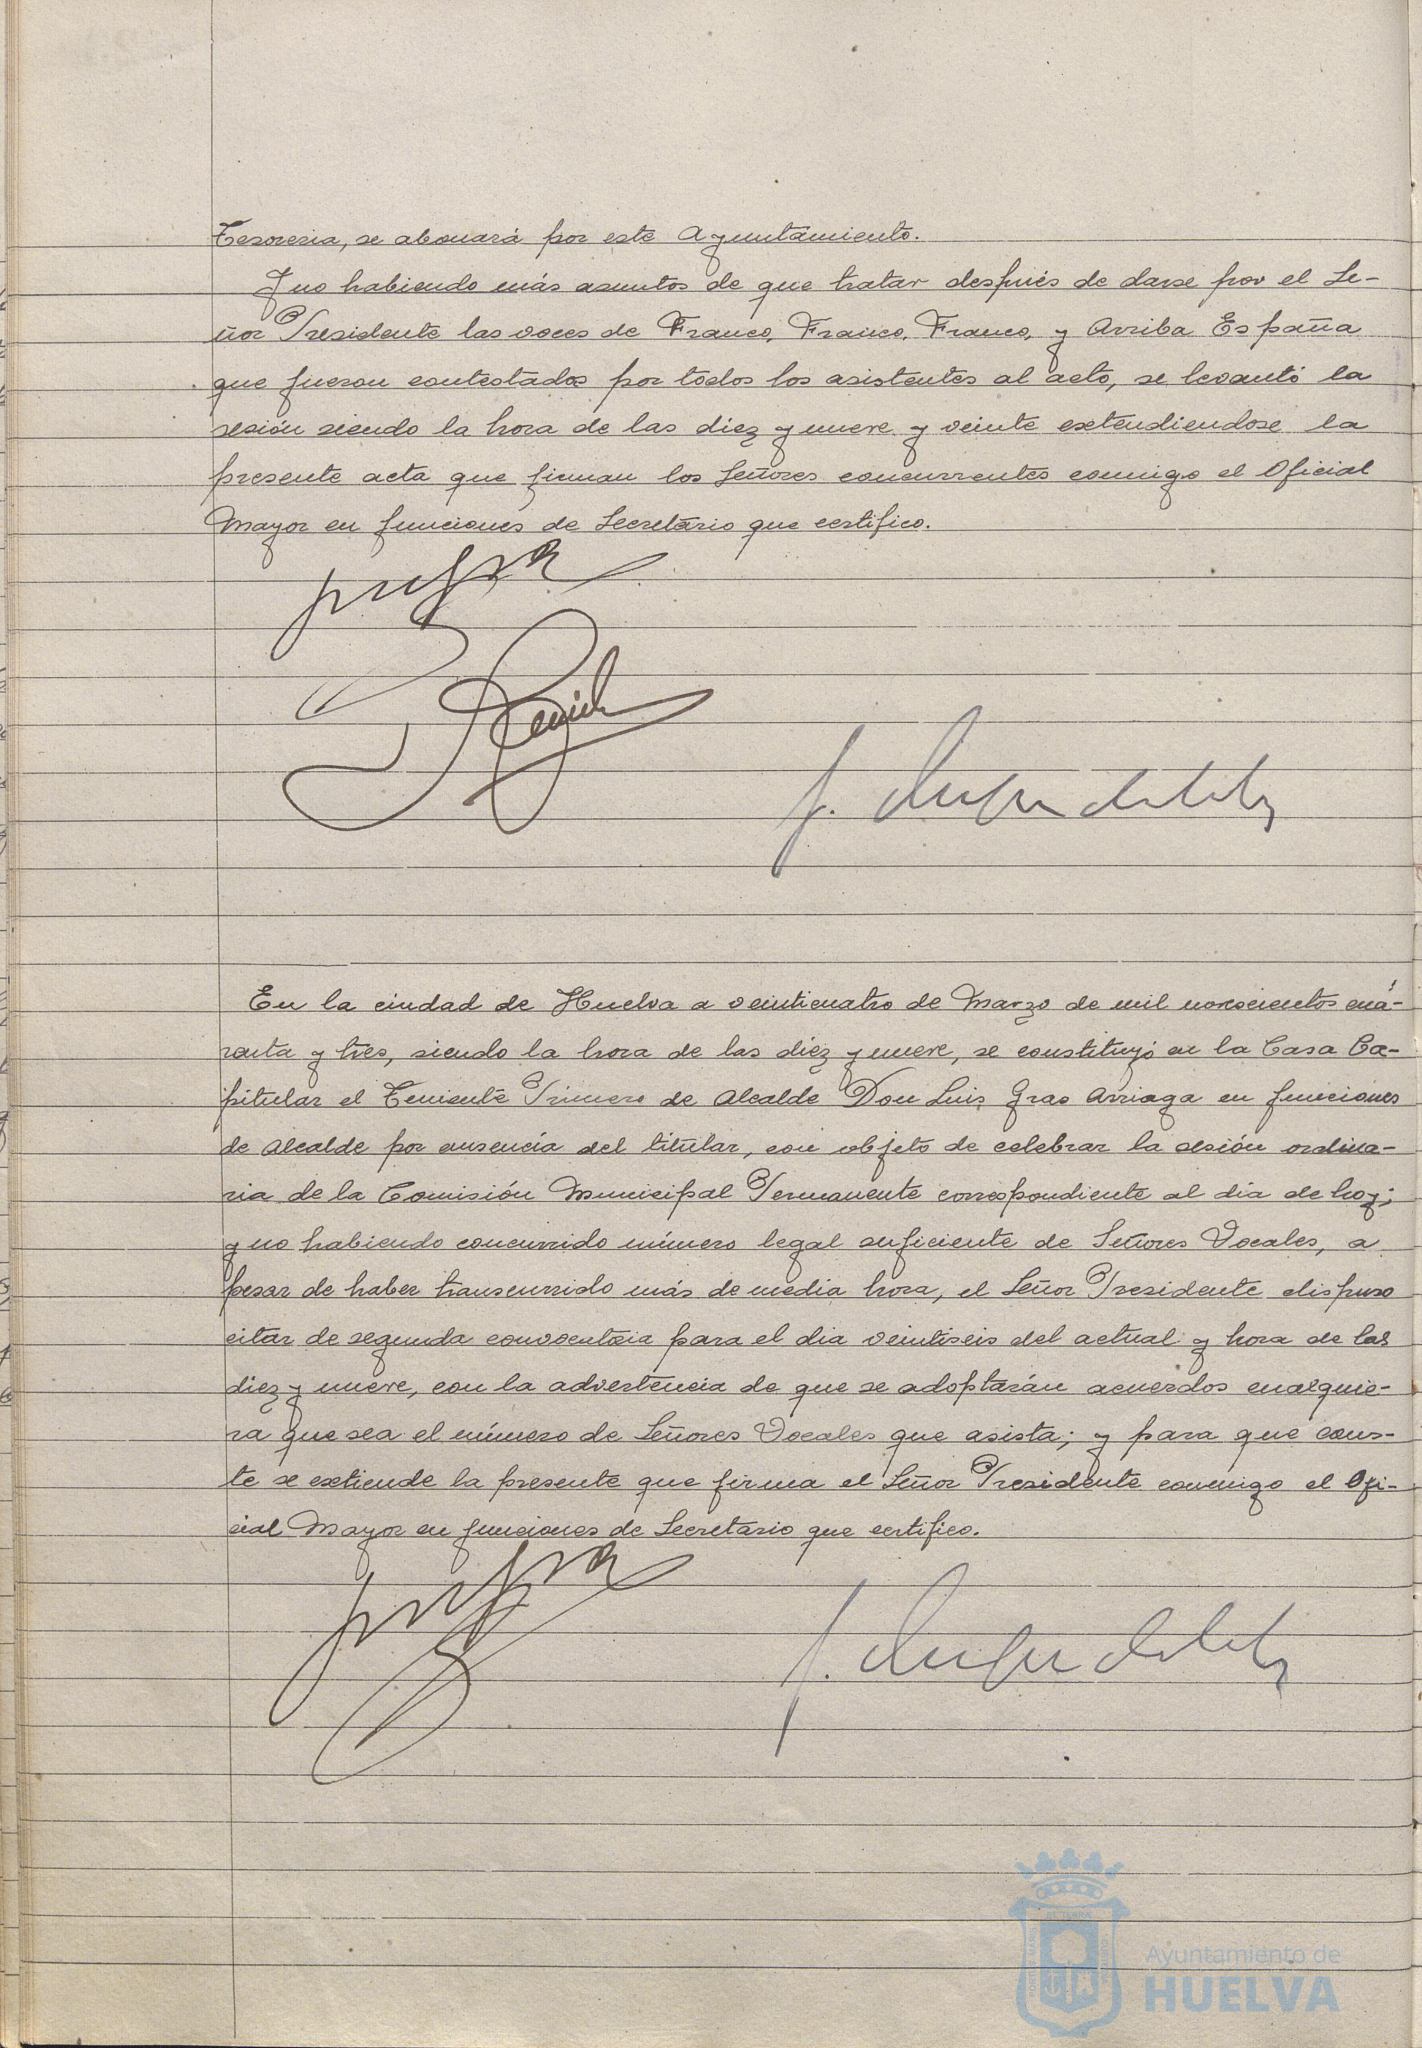 Tesoreria, se abonará por este Ayuntamiento.
Y no habiendo más asuntos de que tratar después de darse por el Se-
ñor Presidente las voces de Franco, Franco, Franco, y Arriba España
que fueron contestados por todos los asistentes al acto, se levantó la
sesión siendo la hora de las diez y nueve y veinte extendiendose la
presente acta que firman los Señores concurrentes conmigo el Oficial
Mayor en funciones de Secretario que certifico.
En la ciudad de Huelva a veinticuatro de Marzo de mil novecientos cua-
renta y tres, siendo la hora de las diez y nueve, se constituyó en la Casa Ca-
pitular el Teniente Primero de Alcalde Don Luis Grao Arriaga en funciones
de Alcalde por ausencia del titular, con objeto de celebrar la sesión ordina-
ria de la Comisión Municipal Permanente correspondiente al dia de hoy;
y no habiendo concurrido número legal suficiente de Señores Vocales, a
pesar de haber transcurrido más de media hora, el Señor Presidente dispuso
citar de segunda convocatoria para el dia veintiseis del actual y hora de las
diez y nueve, con la advertencia de que se adoptarán acuerdos cualquie-
ra que sea el número de Señores Vocales que asista; y para que cons-
te se extiende la presente que firma el Señor Presidente conmigo el Ofi-
cial Mayor en funciones de Secretario que certifico.
Ayuntamiento de
HUELVA